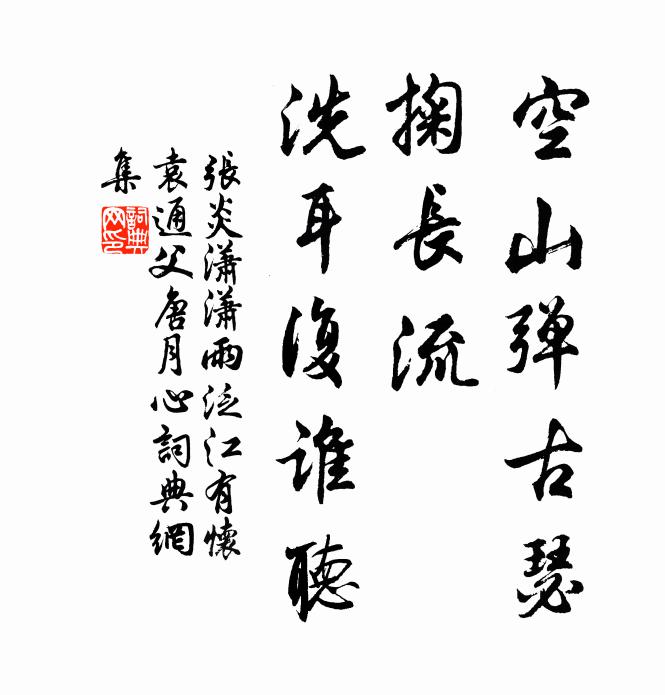 空山弹古瑟
掬長流
洗耳復谁聽
張炎瀟瀟雨泛江有懷
袁通父唐月心詞典網
集
詞典
网印